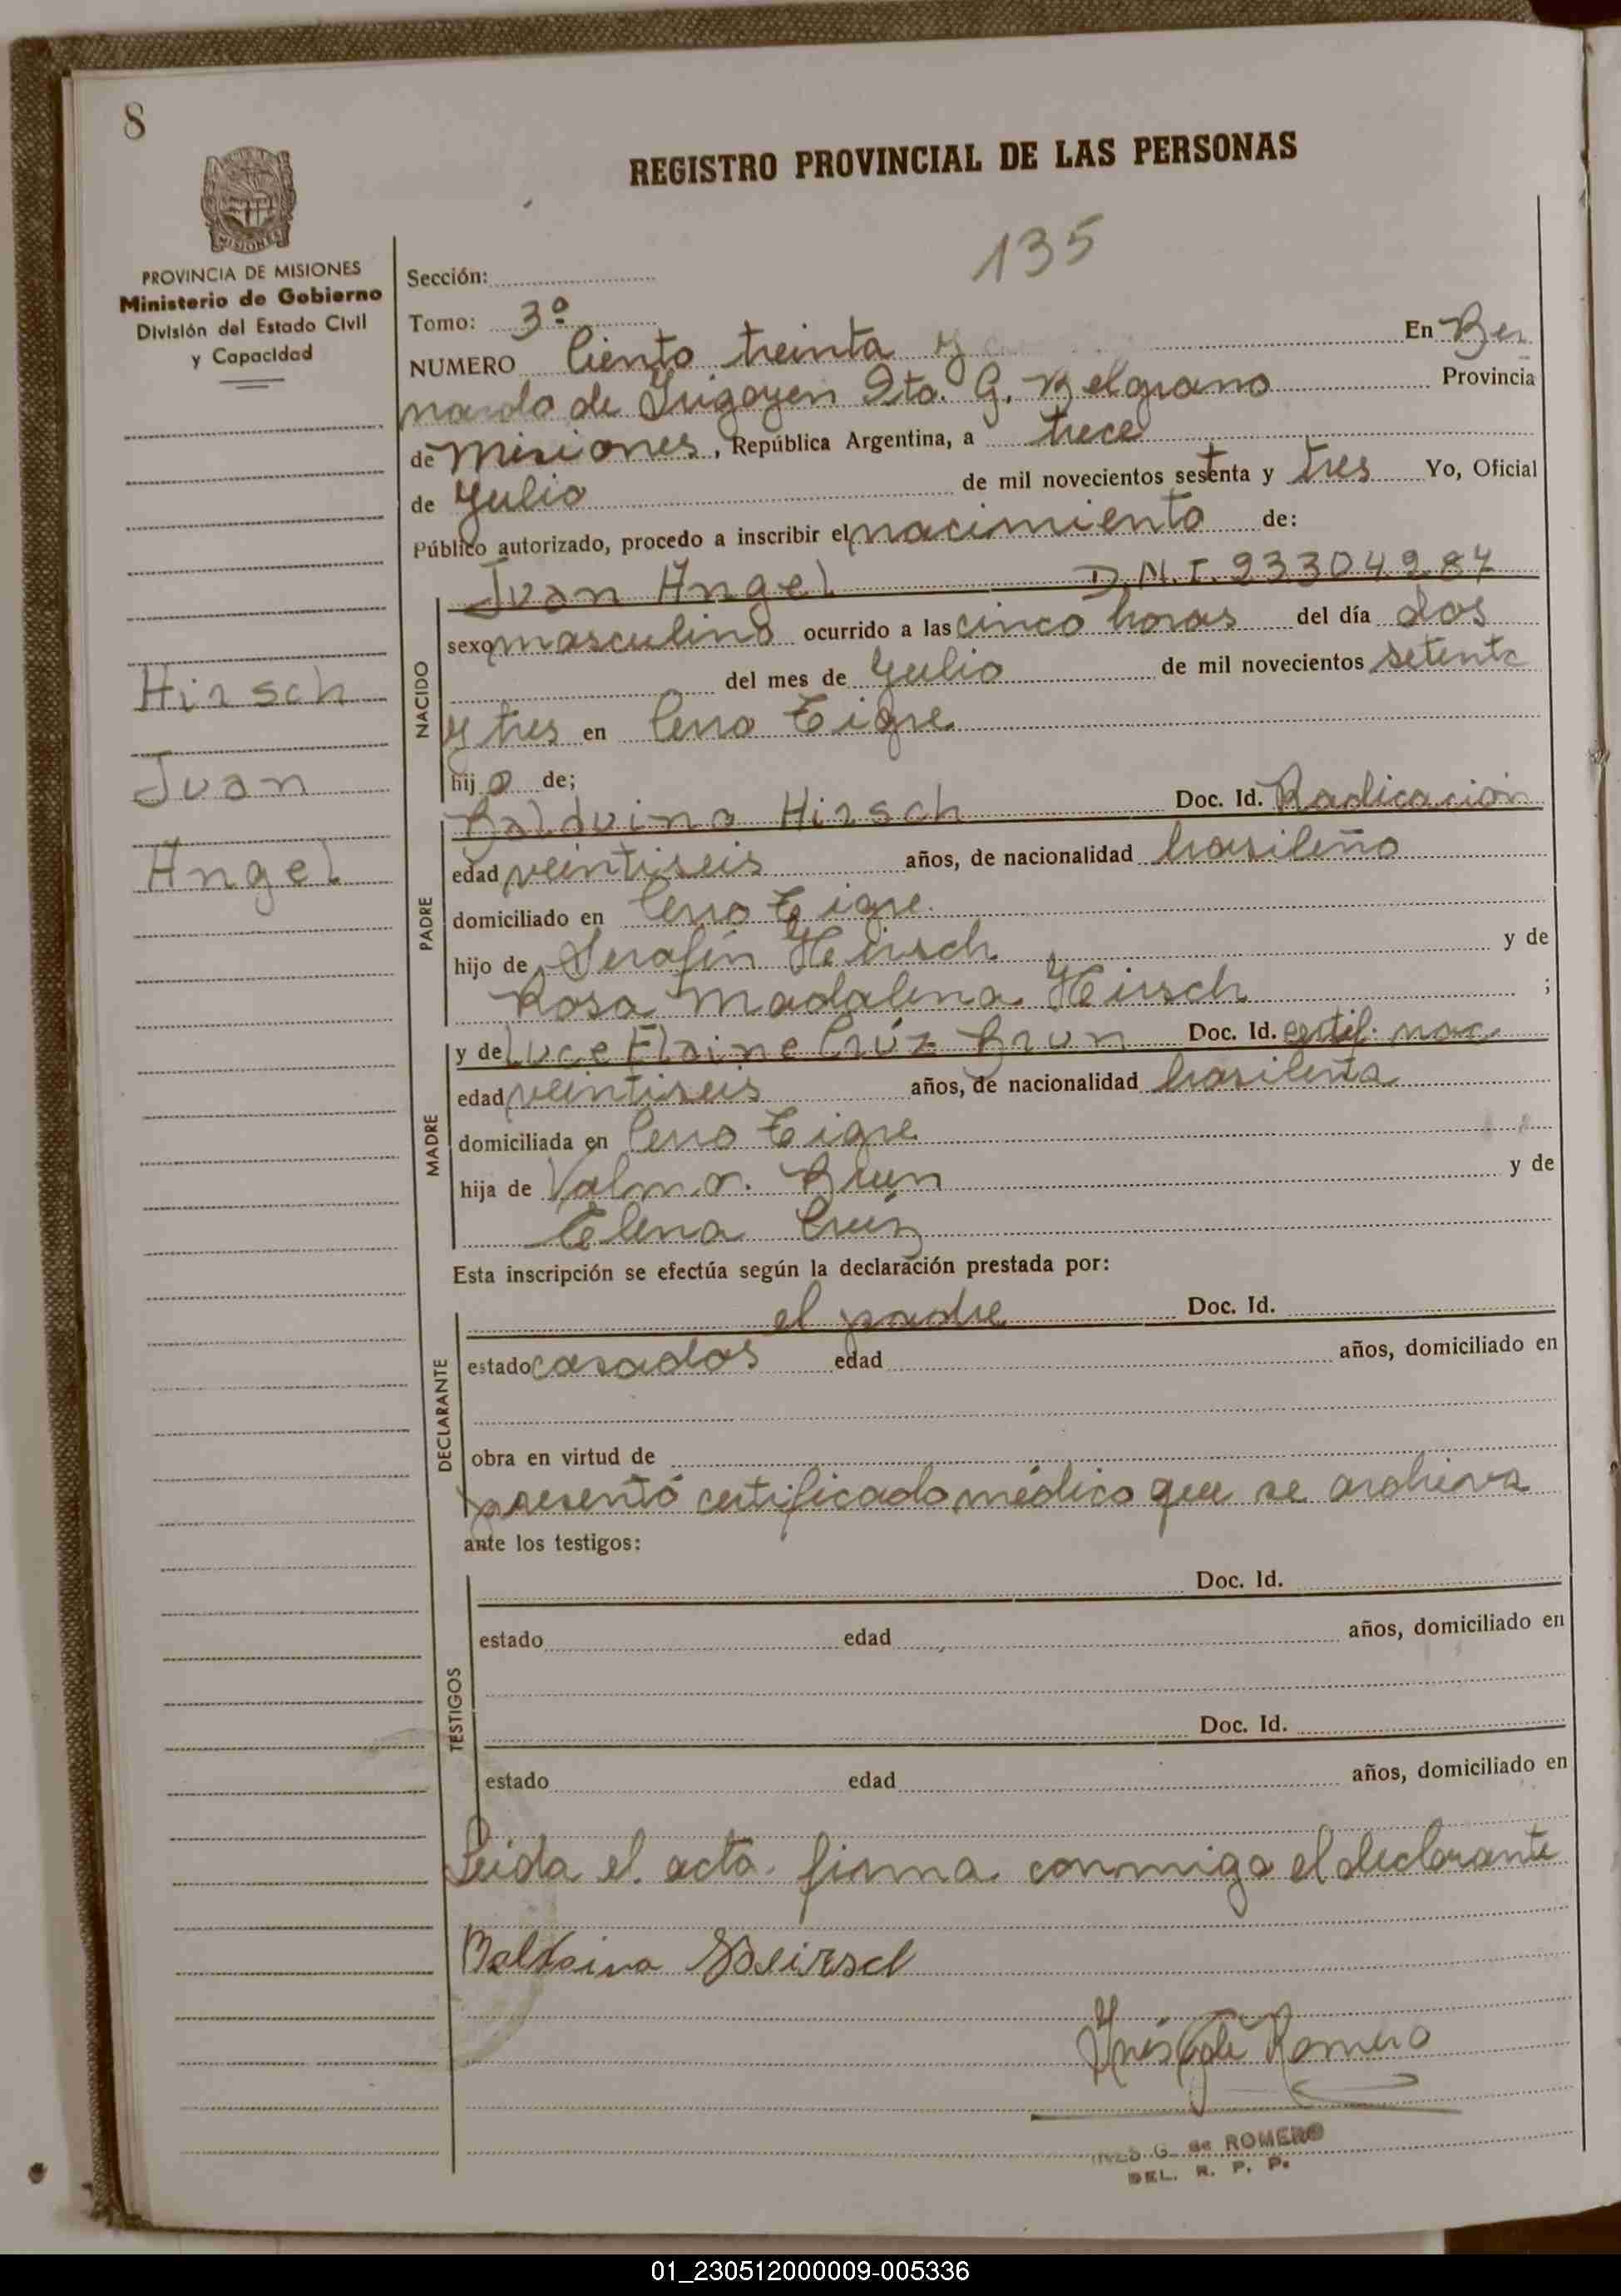 8
REGISTRO PROVINCIAL DE LAS PERSONAS
MISIONES
PROVINCIA DE MISIONES
Ministerio de Gobierno
División del Estado Civil
y Capacidad
135
Sección:
Tomo: 3º
NUMERO Ciento treinta y En Ber
nardo de Irigoyen Dto. G. Belgrano Provincia
de Misiones, República Argentina, a trece
de Julio de mil novecientos sesenta y tres Yo, Oficial
Público autorizado, procedo a inscribir el nacimiento de:
Juan Angel D.N.I. 93304984
NACIDO
sexo masculino ocurrido a las cinco horas del día dos
del mes de Julio de mil novecientos setenta
y tres en Cerro Tigre
hijo de;
Hirsch
Juan
Angel
Balduino Hirsch Doc. Id. Radicación
PADRE
edad veintiseis años, de nacionalidad brasileño
domiciliado en Cerro Tigre
hijo de Serafín Heirsch y de
Rosa Madalena Heirsch ;
y de Luce Elaine Crúz Brun Doc. Id. certif. nac
MADRE
edad veintiseis años, de nacionalidad brasileña
domiciliada en Cerro Tigre
hija de Valmor Brun y de
Elena Crúz
Esta inscripción se efectúa según la declaración prestada por:
el padre Doc. Id.
DECLARANTE
estado casados edad años, domiciliado en
obra en virtud de
presentó certificado médico que se archiva
ante los testigos:
TESTIGOS
Doc. Id.
estado edad años, domiciliado en
Doc. Id.
estado edad años, domiciliado en
Leida el acta firma conmigo el declarante
Balduino Heirsch
Inés G de Romero
INES G. de ROMERO
DEL. R. P. P.
01_230512000009-005336